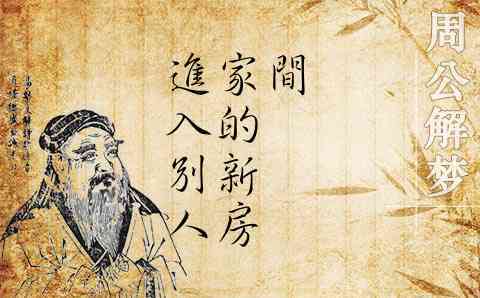 周公解梦
進入别人
家的新房
間